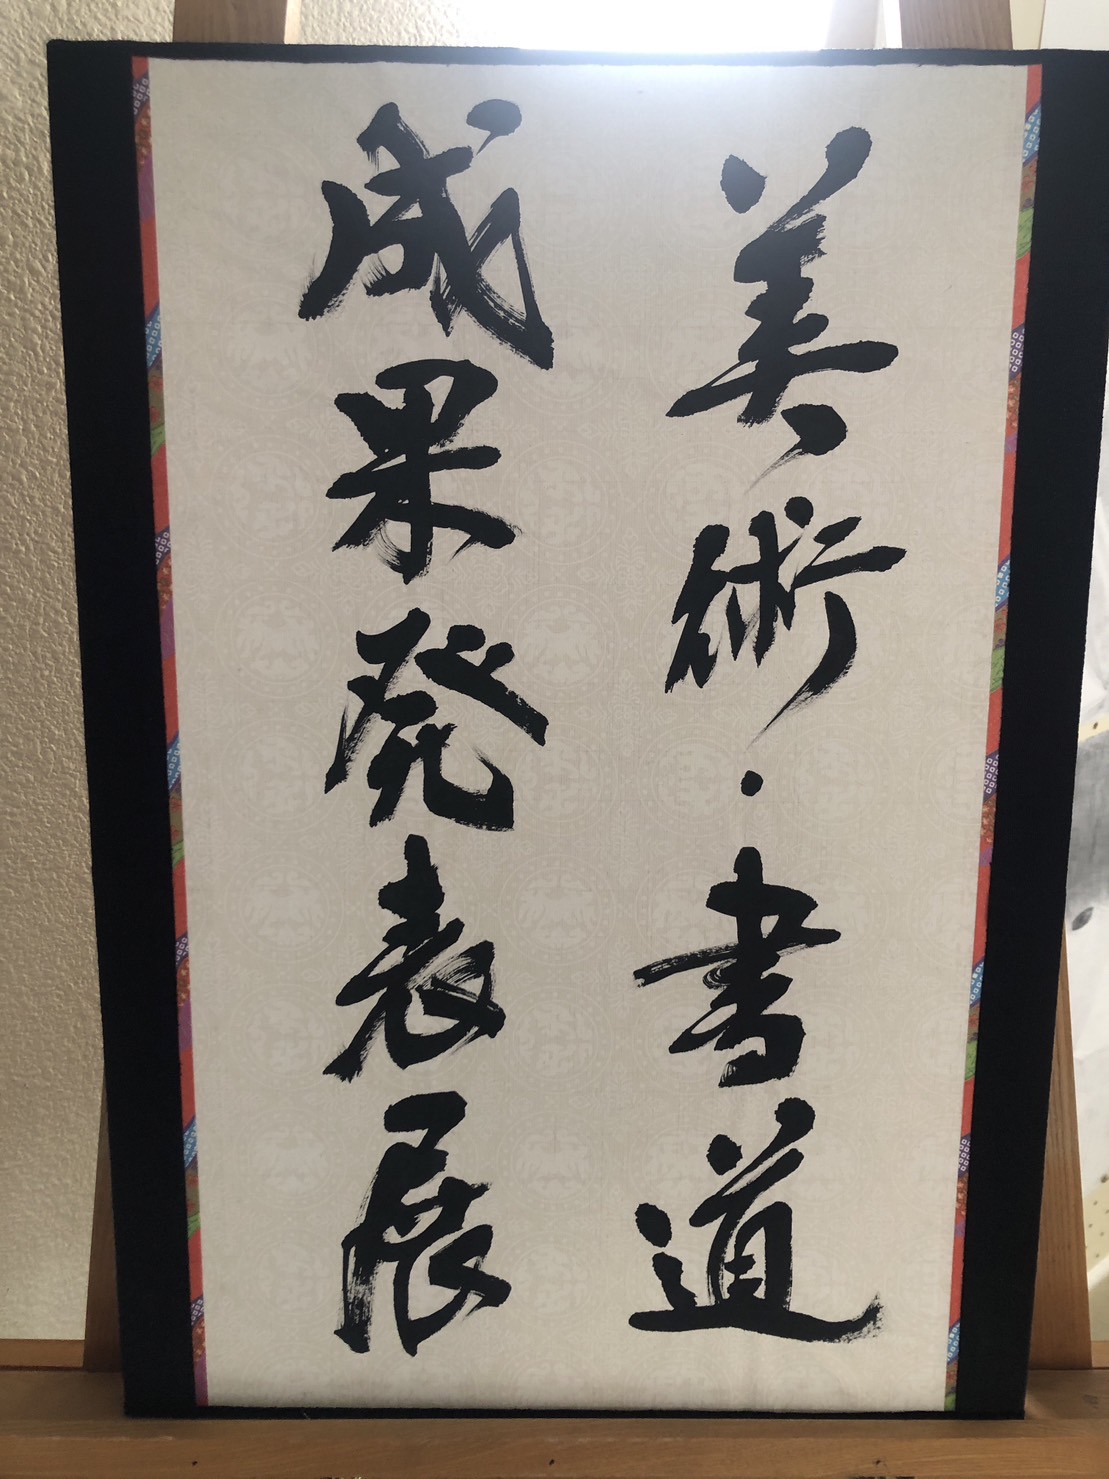 美術・書道
成果発表展